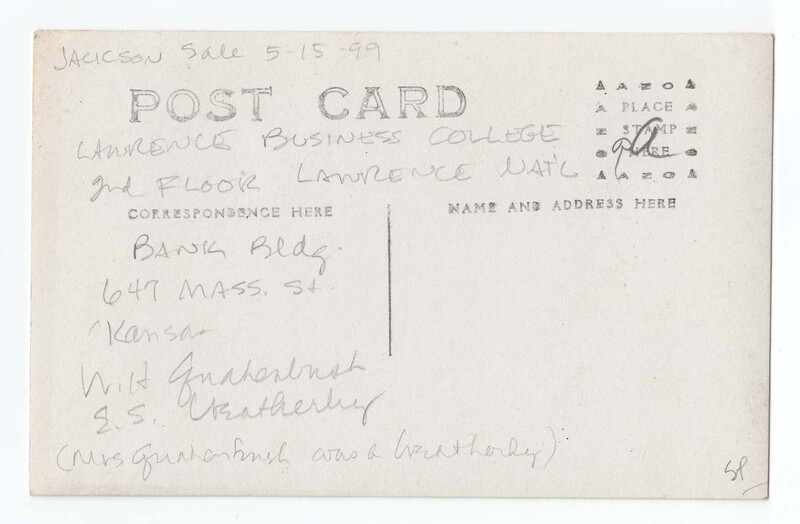 JACKSON Sale 5-15-99
POST CARD
AZO
PLACE
STAMP
HERE
AZO
LAWRENCE BUSINESS COLLEGE
2nd FLOOR LAWRENCE NAT'L
CORRESPONDENCE HERE
NAME AND ADDRESS HERE
BANK Bldg.
647 MASS. St.
Kansas
W.H Quakenbush
E.S. Weatherby
(Mrs Quakenbush was a Weatherby)